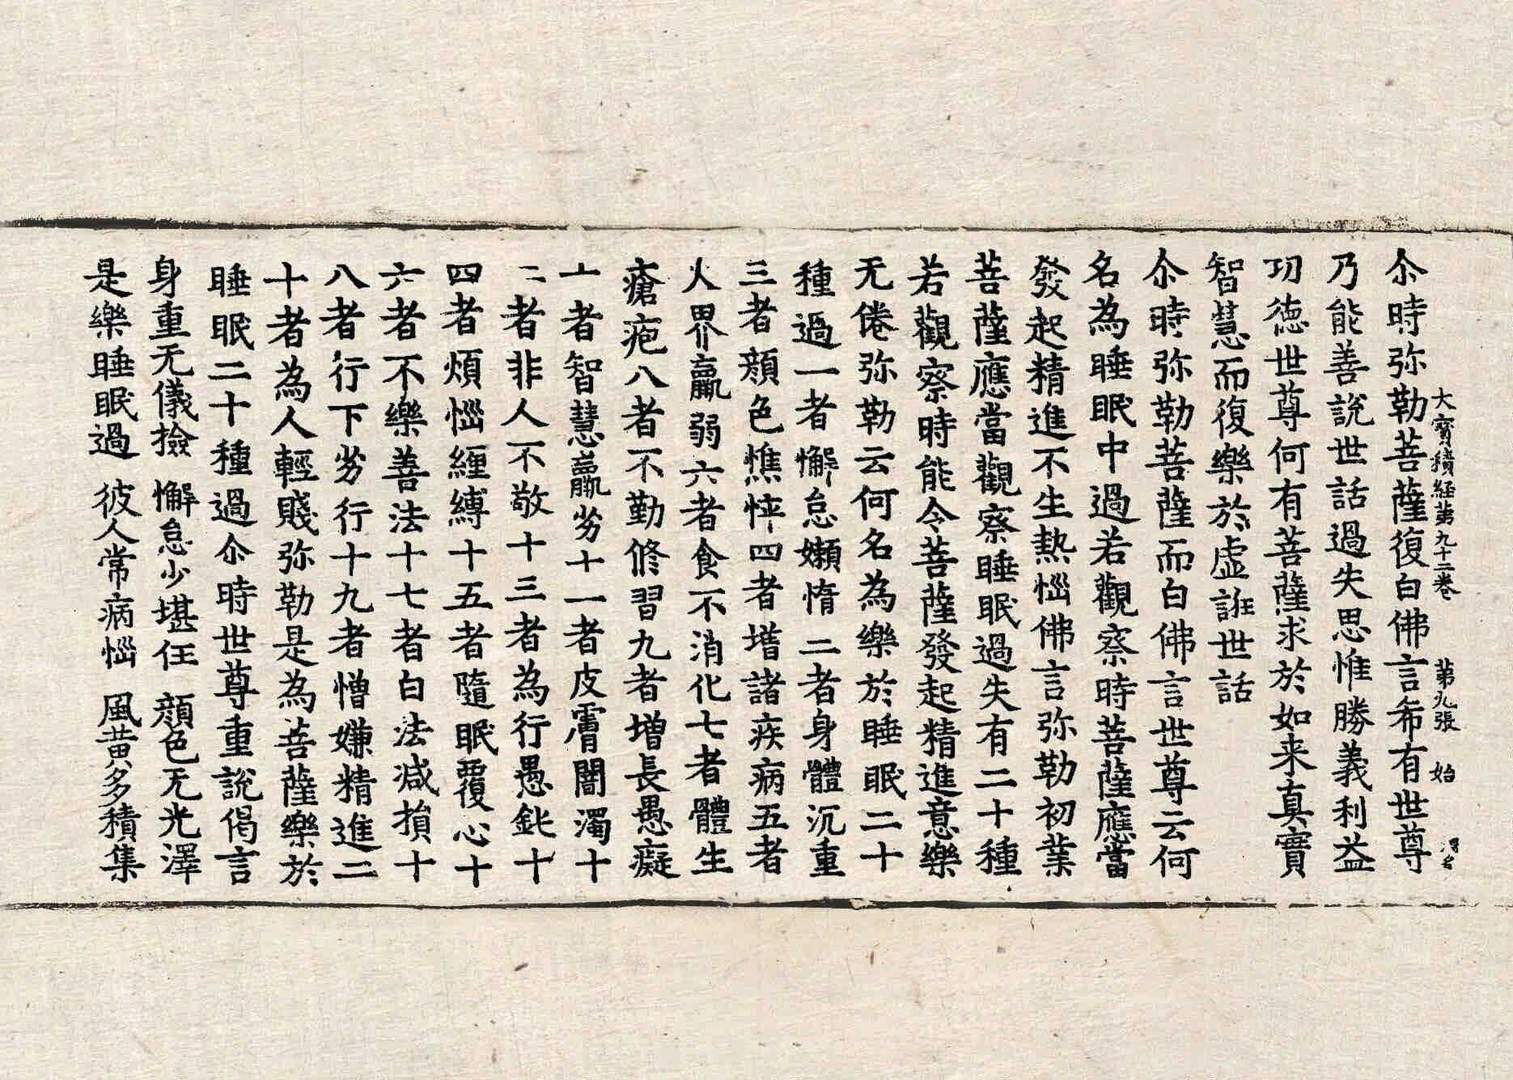 大寳積経苐九十二巻 苐九張 始
尒時弥勒菩薩復白佛言希有世尊
乃能善說世話過失思惟勝義利益
功徳世尊何有菩薩求於如来真實
智慧而復樂於虚誑世話
尒時弥勒菩薩而白佛言世尊云何
名為睡眠中過若觀察時菩薩應當
發起精進不生熱惱佛言弥勒初業
菩薩應當觀察睡眠過失有二十種
若觀察時能令菩薩發起精進意樂
无倦弥勒云何名為樂於睡眠二十
種過一者懈怠嬾惰二者身體沉重
三者顔色憔悴四者增諸疾病五者
火界羸弱六者食不消化七者體生
瘡疱八者不勤修習九者增長愚癡
十者智慧羸劣十一者皮膚闇濁十
二者非人不敬十三者為行愚鈍十
四者煩惱纒縛十五者隨眠覆心十
六者不樂善法十七者白法減損十
八者行下劣行十九者憎嫌精進二
十者為人輕賤弥勒是為菩薩樂於
睡眠二十種過尒時世尊重說偈言
身重无儀撿 懈怠少堪任 顔色无光澤
是樂睡眠過 彼人常病惱 風黄多積集